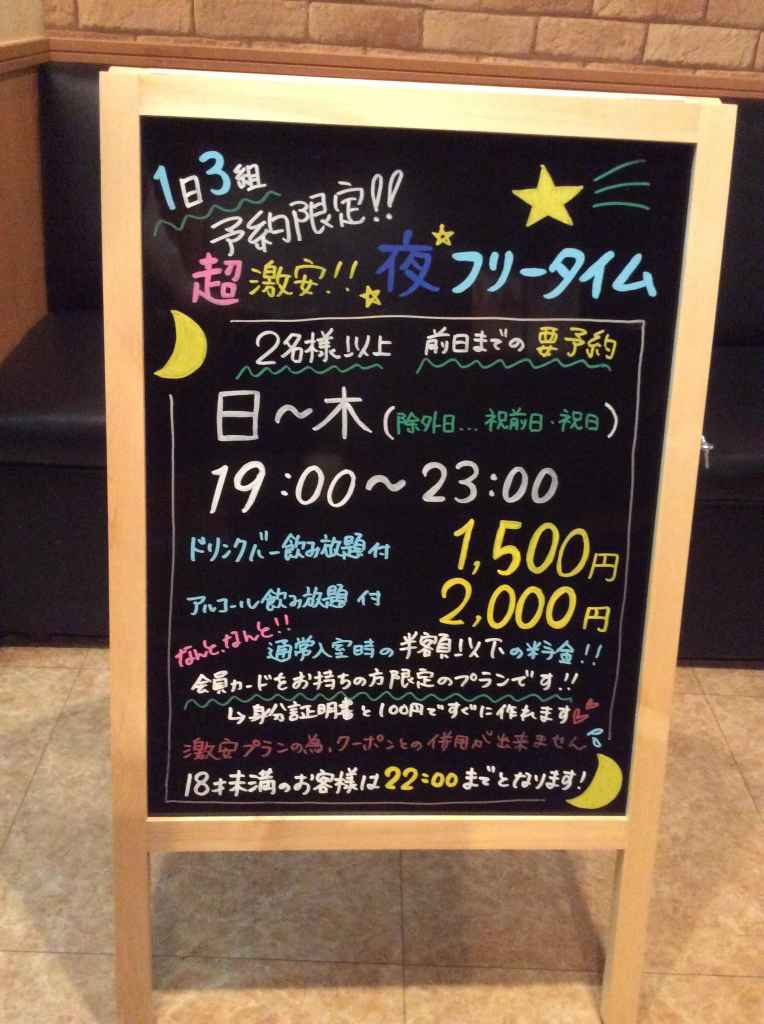 1日3組
予約限定!!
超激安!! 夜フリータイム
2名様以上 前日までの要予約
日〜木(除外日...祝前日・祝日)
19:00〜23:00
ドリンクバー飲み放題付 1,500円
アルコール飲み放題付 2,000円
なんと、なんと!!
通常入室時の半額以下の料金!!
会員カードをお持ちの方限定のプランです!!
↳身分証明書と100円ですぐに作れます
激安プランの為、クーポンとの併用が出来ません
18才未満のお客様は22:00までとなります!